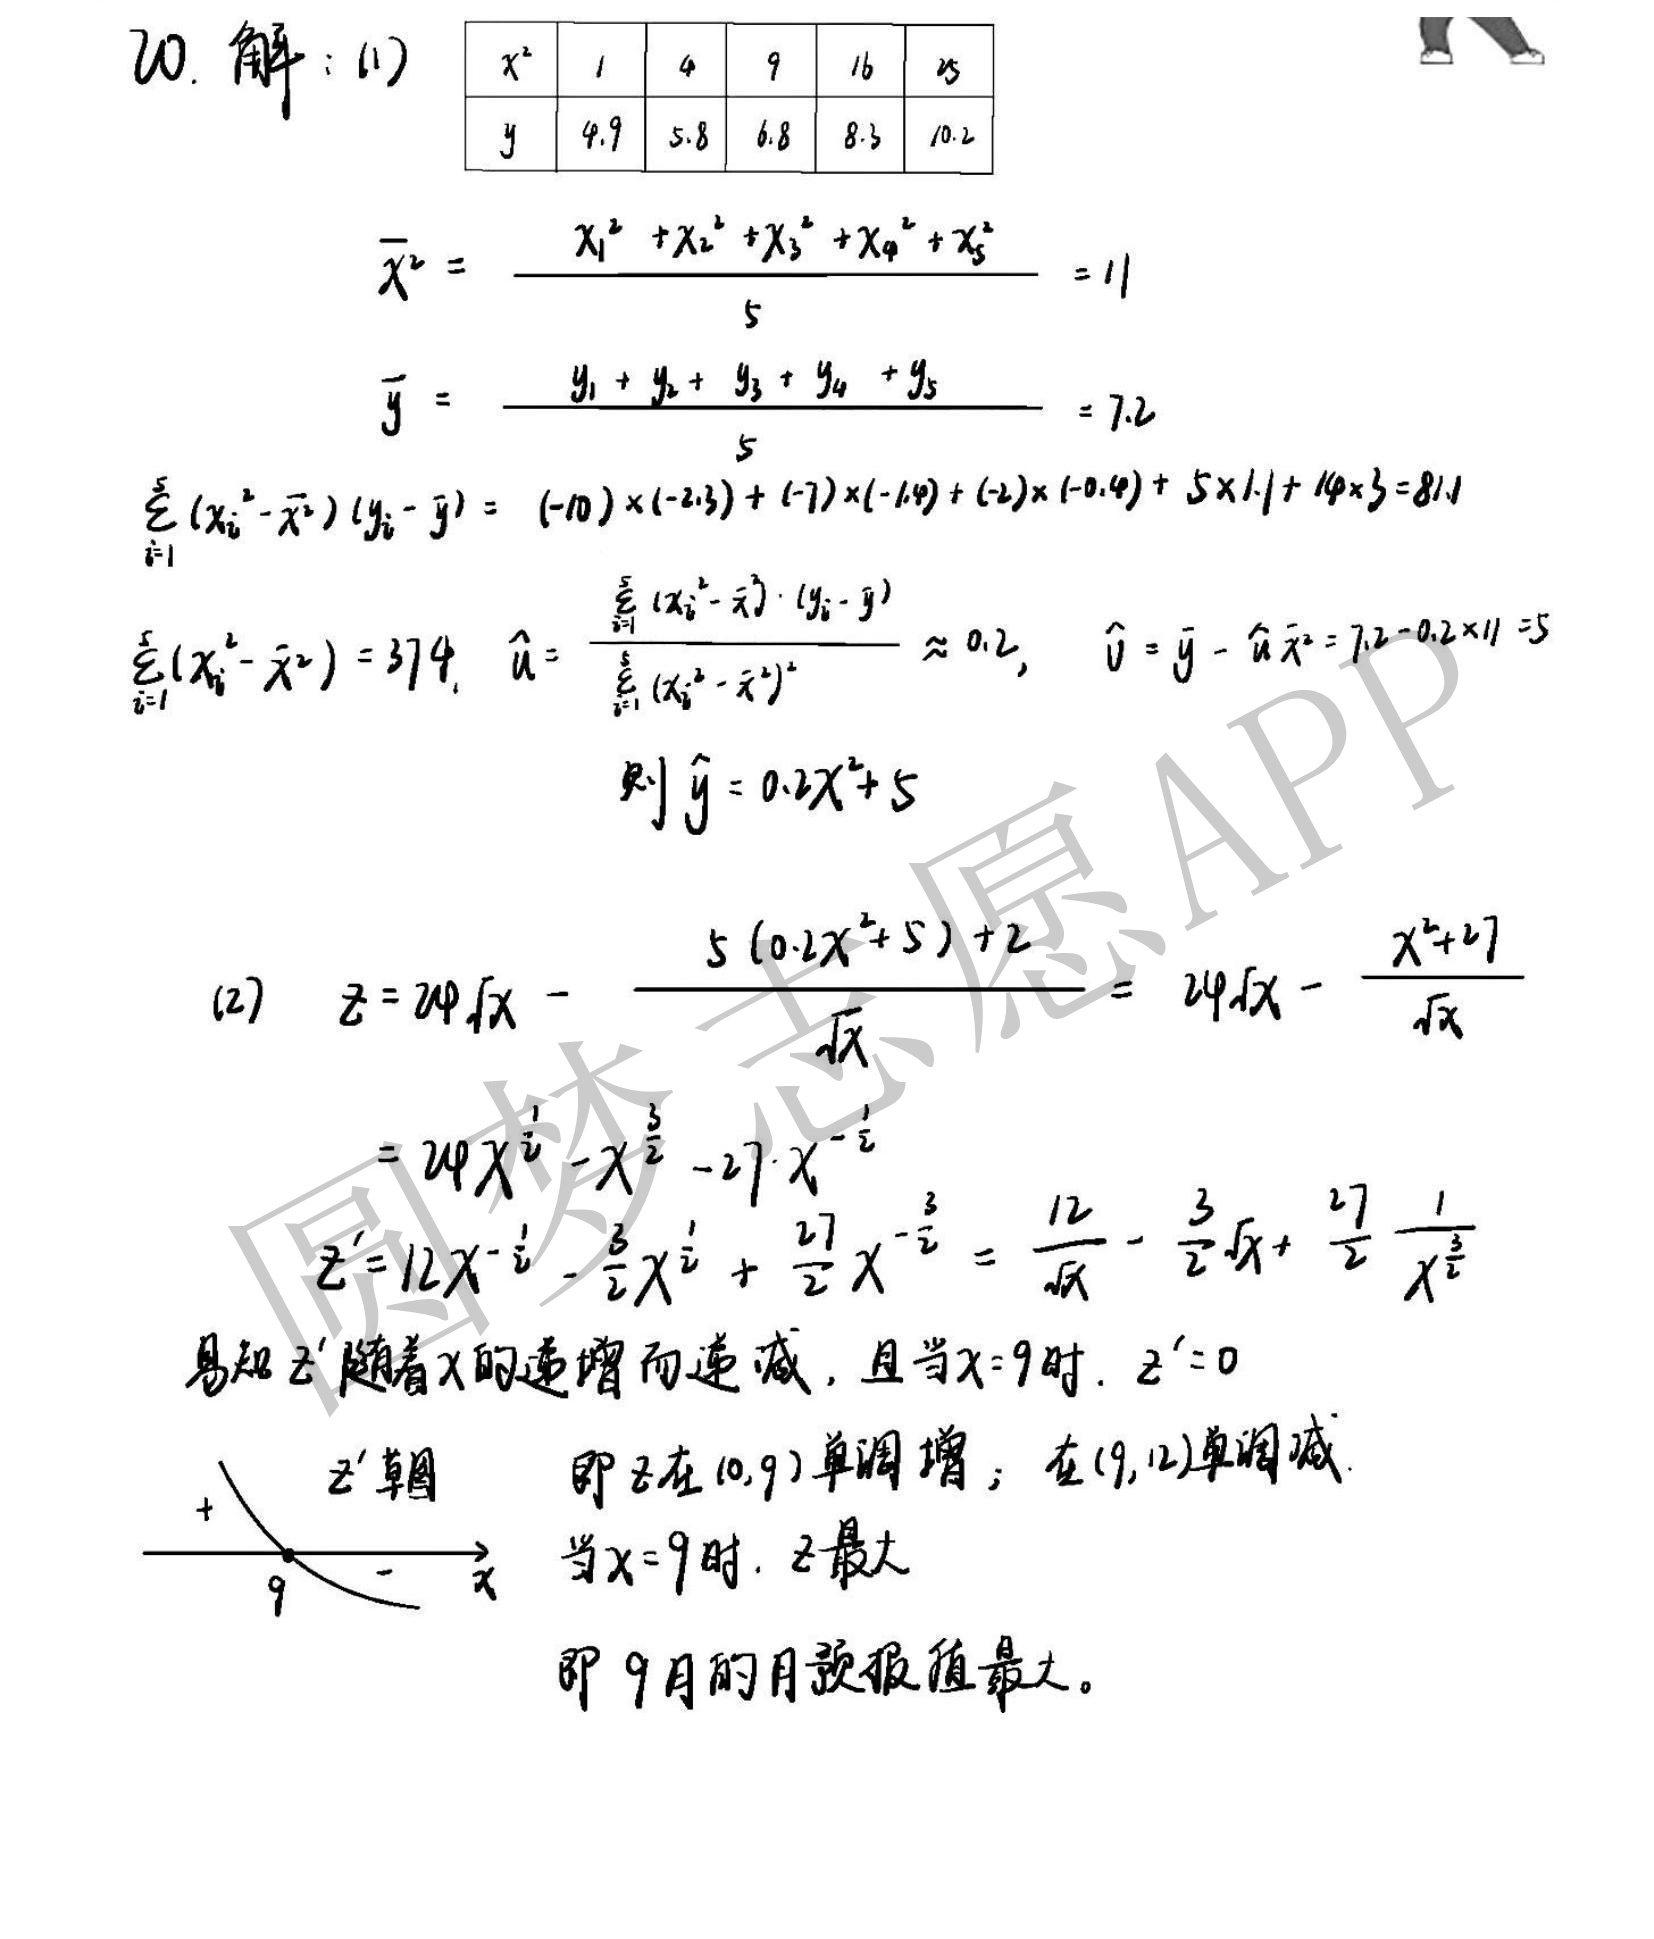 20. 解：(1)
x² 1 4 9 16 25
y 4.9 5.8 6.8 8.3 10.2
x̄² = (x₁² + x₂² + x₃² + x₄² + x₅²)/5 = 11
ȳ = (y₁ + y₂ + y₃ + y₄ + y₅)/5 = 7.2
∑_{i=1}^{5} (xᵢ² - x̄²)(yᵢ - ȳ) = (-10)×(-2.3) + (-7)×(-1.4) + (-2)×(-0.4) + 5×1.1 + 14×3 = 81.1
∑_{i=1}^{5} (xᵢ² - x̄²) = 374, û = ∑_{i=1}^{5} (xᵢ² - x̄²)·(yᵢ - ȳ) / ∑_{i=1}^{5} (xᵢ² - x̄²)² ≈ 0.2, v̂ = ȳ - û x̄² = 7.2 - 0.2×11 = 5
则 ŷ = 0.2x² + 5
(2) z = 24√x - (5(0.2x² + 5) + 2)/√x = 24√x - (x² + 27)/√x
= 24x^{1/2} - x^{3/2} - 27·x^{-1/2}
z′ = 12x^{-1/2} - 3/2 x^{1/2} + 27/2 x^{-3/2} = 12/√x - 3/2 √x + 27/2 1/x^{3/2}
易知 z′随着x的递增而递减，且当x=9时. z′=0
z′草图 即 z在(0,9)单调增；在(9,12)单调减.
+ - 9 x
当x=9时. z最大
即 9月的月预报值最大。
圆梦志愿APP